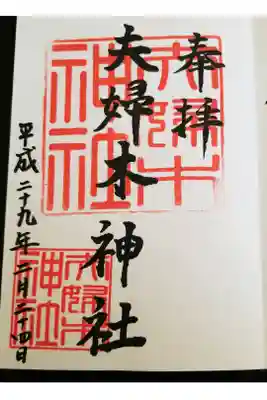 奉拝
夫婦木神社
平成二十九年二月二十四日
夫婦木
神社
夫婦木
神社